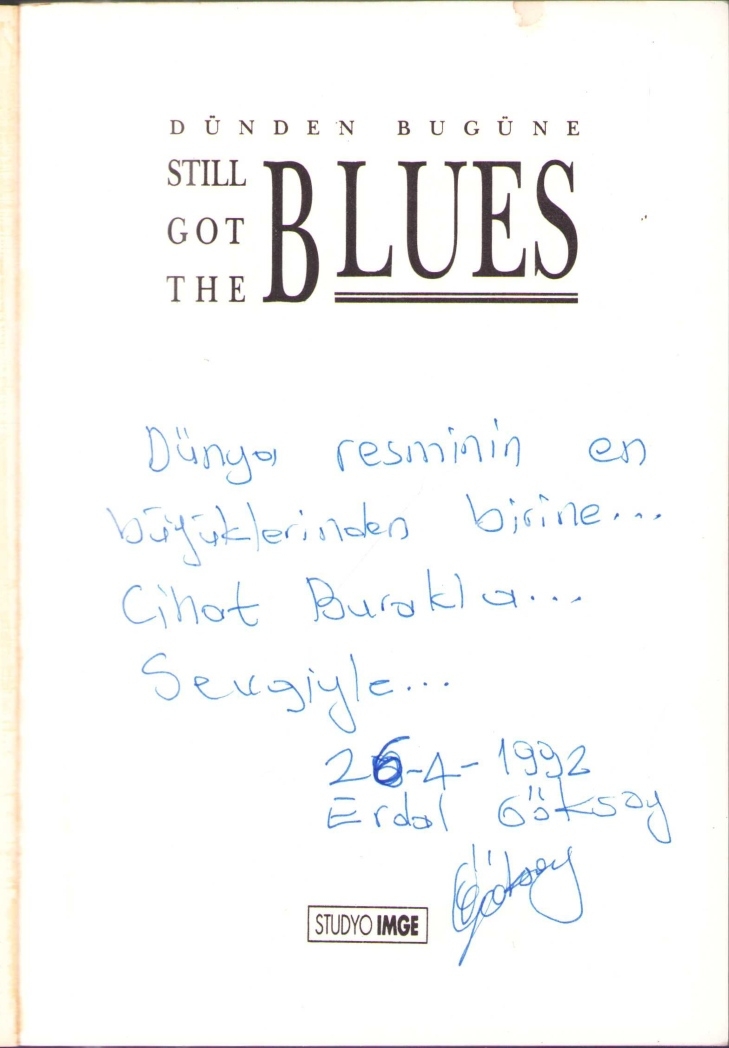 DÜNDEN BUGÜNE
STILL
GOT
THE
BLUES
Dünya resminin en
büyüklerinden birine...
Cihat Burakla...
Sevgiyle...
26-4-1992
Erdal Göksoy
Göksoy
STUDYO IMGE